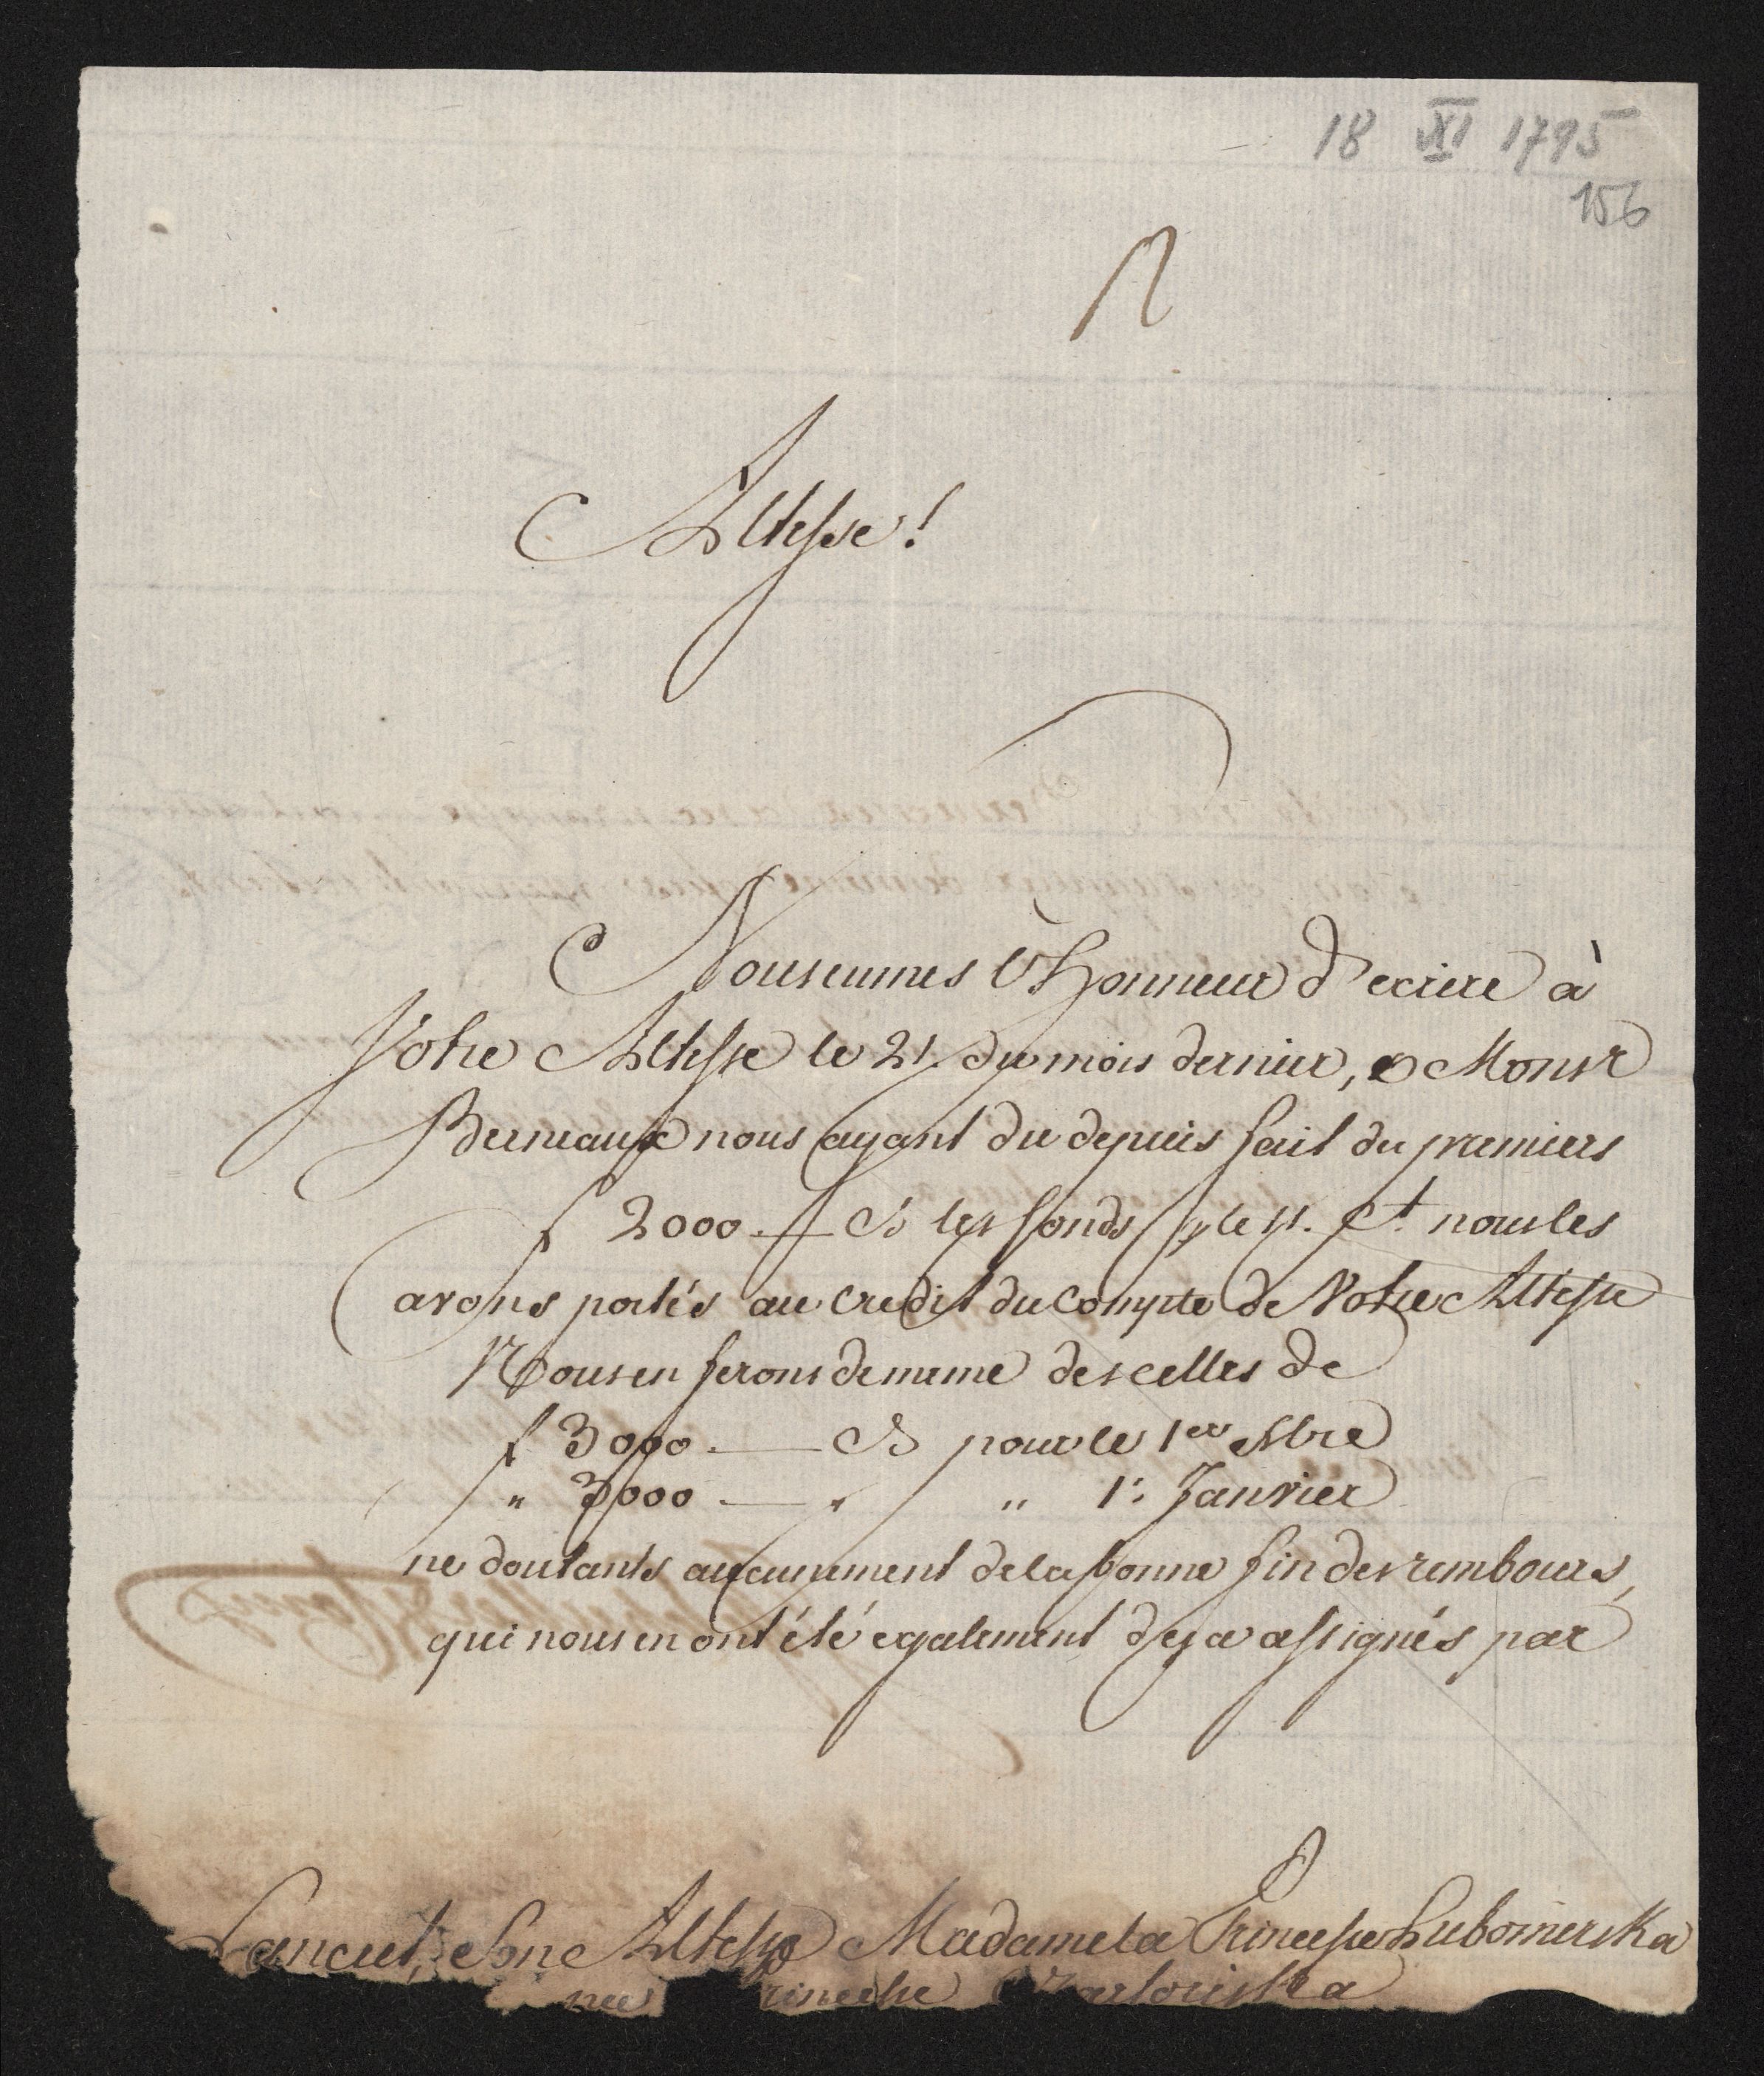 18 XI 1795
156
Altesse!
Nous eumes l'Honneur d'ecrire à
Votre Altesse le 21. du mois dernier, & Monsr
Berneaux nous ayant du depuis fait du premiers
f 2000 — les fonds nous les
avons portés au credit du Compte de Votre Altesse
Nous en ferons de meme des celles de
f 3000. — pour le 1er Xbre
" 3000 — " " 1: Janvier
ne doutants aucunement de la bonne fin des rembours,
qui nous en ont été egalement deja assignés par
Lancut, Son Altesse Madame la Princesse Lubomirska
née Princesse Czartoriska